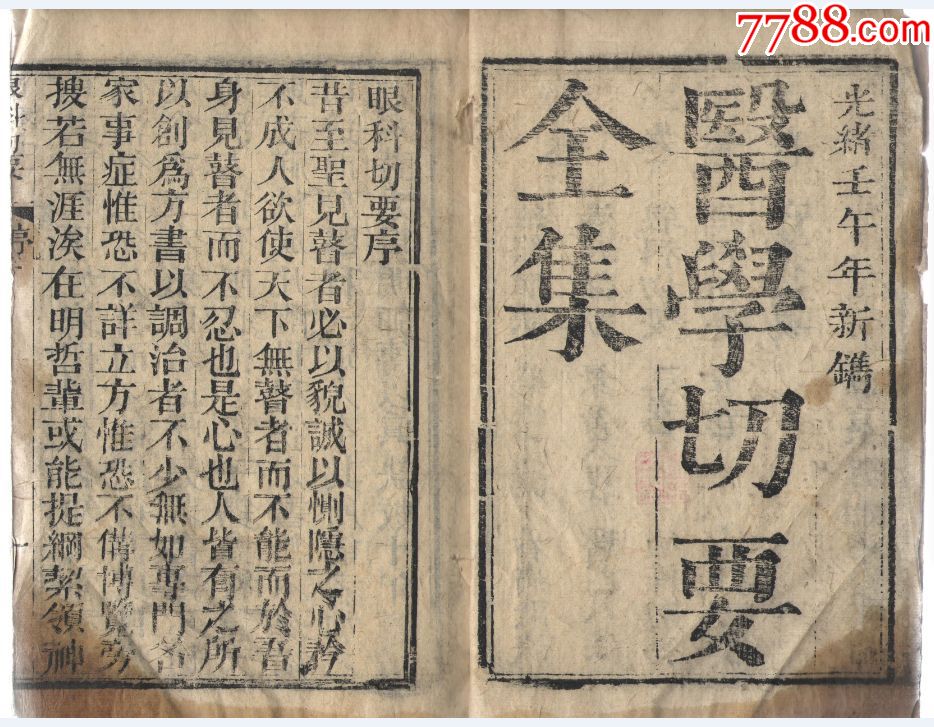 7788.com
光緒壬午年新鐫
醫學切要
全集
眼科切要序
昔至聖見瞽者必以貌誠以惻隱之心矜
不成人欲使天下無瞽者而不能而於吾
身見瞽者而不忍也是心也人皆有之所
以創為方書以調治者不少無如專門各
家事症惟恐不詳立方惟恐不備博覽旁
搜若無涯涘在明哲輩或能提綱絜領神
眼科切要
序